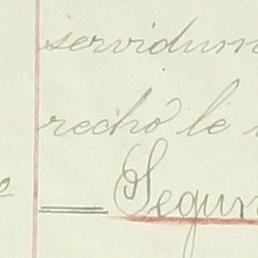 servidum
recho le
Segun